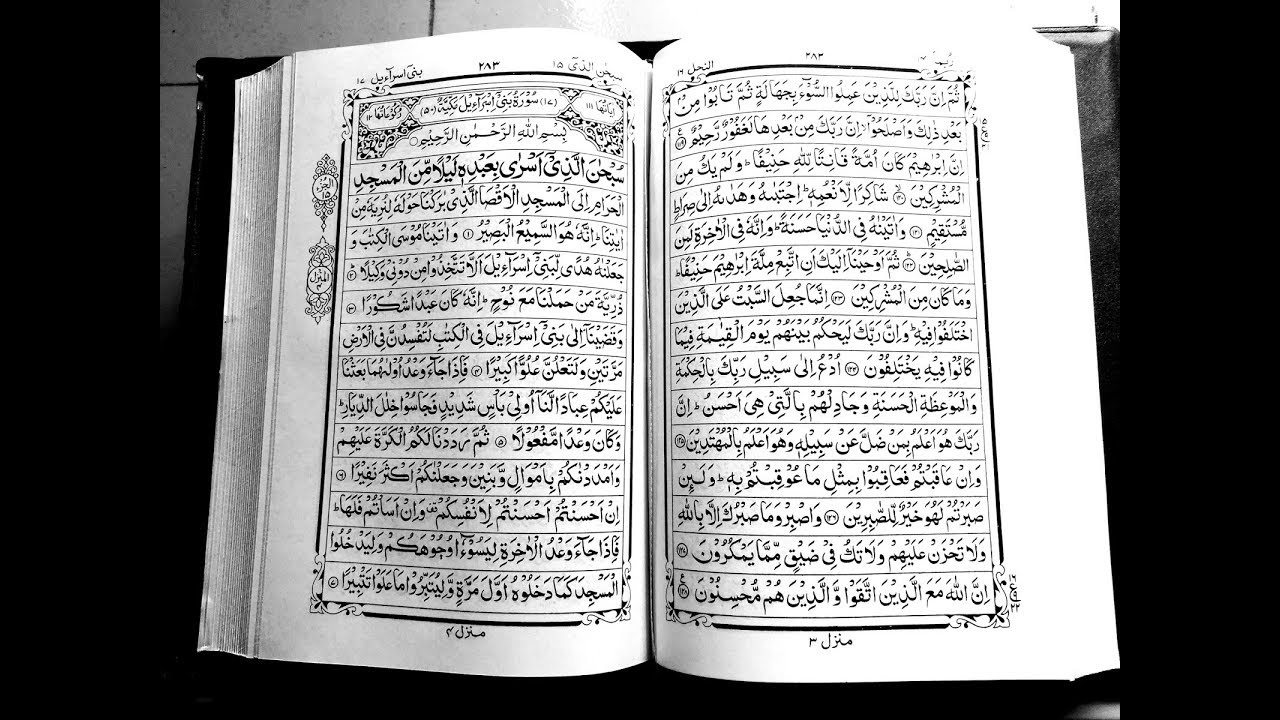 ربما ١٤
٢٨٣
النحل ١٦
ثُمَّ اِنَّ رَبَّكَ لِلَّذِيْنَ عَمِلُوا السُّوْٓءَ بِجَهَالَةٍ ثُمَّ تَابُوْا مِنْۢ
بَعْدِ ذٰلِكَ وَاَصْلَحُوْٓا ۙ اِنَّ رَبَّكَ مِنْۢ بَعْدِهَا لَغَفُوْرٌ رَّحِيْمٌ ﴿١١٩﴾
اِنَّ اِبْرٰهِيْمَ كَانَ اُمَّةً قَانِتًا لِّلّٰهِ حَنِيْفًا ؕ وَلَمْ يَكُ مِنَ
الْمُشْرِكِيْنَ ﴿١٢٠﴾ شَاكِرًا لِّاَنْعُمِهٖ ؕ اِجْتَبٰىهُ وَهَدٰىهُ اِلٰى صِرَاطٍ
مُّسْتَقِيْمٍ ﴿١٢١﴾ وَاٰتَيْنٰهُ فِى الدُّنْيَا حَسَنَةً ؕ وَاِنَّهٗ فِى الْاٰخِرَةِ لَمِنَ
الصّٰلِحِيْنَ ﴿١٢٢﴾ ثُمَّ اَوْحَيْنَاۤ اِلَيْكَ اَنِ اتَّبِعْ مِلَّةَ اِبْرٰهِيْمَ حَنِيْفًا ؕ
وَمَا كَانَ مِنَ الْمُشْرِكِيْنَ ﴿١٢٣﴾ اِنَّمَا جُعِلَ السَّبْتُ عَلَى الَّذِيْنَ
اخْتَلَفُوْا فِيْهِ ؕ وَاِنَّ رَبَّكَ لَيَحْكُمُ بَيْنَهُمْ يَوْمَ الْقِيٰمَةِ فِيْمَا
كَانُوْا فِيْهِ يَخْتَلِفُوْنَ ﴿١٢٤﴾ اُدْعُ اِلٰى سَبِيْلِ رَبِّكَ بِالْحِكْمَةِ
وَالْمَوْعِظَةِ الْحَسَنَةِ وَجَادِلْهُمْ بِالَّتِىْ هِىَ اَحْسَنُ ؕ اِنَّ
رَبَّكَ هُوَ اَعْلَمُ بِمَنْ ضَلَّ عَنْ سَبِيْلِهٖ وَهُوَ اَعْلَمُ بِالْمُهْتَدِيْنَ ﴿١٢٥﴾
وَاِنْ عَاقَبْتُمْ فَعَاقِبُوْا بِمِثْلِ مَا عُوْقِبْتُمْ بِهٖ ؕ وَلَئِنْ
صَبَرْتُمْ لَهُوَ خَيْرٌ لِّلصّٰبِرِيْنَ ﴿١٢٦﴾ وَاصْبِرْ وَمَا صَبْرُكَ اِلَّا بِاللّٰهِ
وَلَا تَحْزَنْ عَلَيْهِمْ وَلَا تَكُ فِىْ ضَيْقٍ مِّمَّا يَمْكُرُوْنَ ﴿١٢٧﴾
اِنَّ اللّٰهَ مَعَ الَّذِيْنَ اتَّقَوْا وَّالَّذِيْنَ هُمْ مُّحْسِنُوْنَ ﴿١٢٨﴾
منزل ٣
سبحٰن الذى ١٥
٢٨٣
بنى اسرآءيل ١٧
اٰيَاتُهَا ١١١
(١٧) سُوْرَةُ بَنِىْٓ اِسْرَآءِيْلَ مَكِّيَّةٌ (٥٠)
رُكُوْعَاتُهَا ١٢
بِسْمِ اللّٰهِ الرَّحْمٰنِ الرَّحِيْمِ
سُبْحٰنَ الَّذِىْٓ اَسْرٰى بِعَبْدِهٖ لَيْلًا مِّنَ الْمَسْجِدِ
الْحَرَامِ اِلَى الْمَسْجِدِ الْاَقْصَا الَّذِىْ بٰرَكْنَا حَوْلَهٗ لِنُرِيَهٗ مِنْ
اٰيٰتِنَا ؕ اِنَّهٗ هُوَ السَّمِيْعُ الْبَصِيْرُ ﴿١﴾ وَاٰتَيْنَا مُوْسَى الْكِتٰبَ وَ
جَعَلْنٰهُ هُدًى لِّبَنِىْٓ اِسْرَآءِيْلَ اَلَّا تَتَّخِذُوْا مِنْ دُوْنِىْ وَكِيْلًا ﴿٢﴾
ذُرِّيَّةَ مَنْ حَمَلْنَا مَعَ نُوْحٍ ؕ اِنَّهٗ كَانَ عَبْدًا شَكُوْرًا ﴿٣﴾
وَقَضَيْنَاۤ اِلٰى بَنِىْٓ اِسْرَآءِيْلَ فِى الْكِتٰبِ لَتُفْسِدُنَّ فِى الْاَرْضِ
مَرَّتَيْنِ وَلَتَعْلُنَّ عُلُوًّا كَبِيْرًا ﴿٤﴾ فَاِذَا جَآءَ وَعْدُ اُوْلٰىهُمَا بَعَثْنَا
عَلَيْكُمْ عِبَادًا لَّنَاۤ اُولِىْ بَاْسٍ شَدِيْدٍ فَجَاسُوْا خِلٰلَ الدِّيَارِ ؕ
وَكَانَ وَعْدًا مَّفْعُوْلًا ﴿٥﴾ ثُمَّ رَدَدْنَا لَكُمُ الْكَرَّةَ عَلَيْهِمْ
وَاَمْدَدْنٰكُمْ بِاَمْوَالٍ وَّبَنِيْنَ وَجَعَلْنٰكُمْ اَكْثَرَ نَفِيْرًا ﴿٦﴾
اِنْ اَحْسَنْتُمْ اَحْسَنْتُمْ لِاَنْفُسِكُمْ وَاِنْ اَسَاْتُمْ فَلَهَا ؕ
فَاِذَا جَآءَ وَعْدُ الْاٰخِرَةِ لِيَسُوْٓءٗا وُجُوْهَكُمْ وَلِيَدْخُلُوا
الْمَسْجِدَ كَمَا دَخَلُوْهُ اَوَّلَ مَرَّةٍ وَّلِيُتَبِّرُوْا مَا عَلَوْا تَتْبِيْرًا ﴿٧﴾
منزل ٤